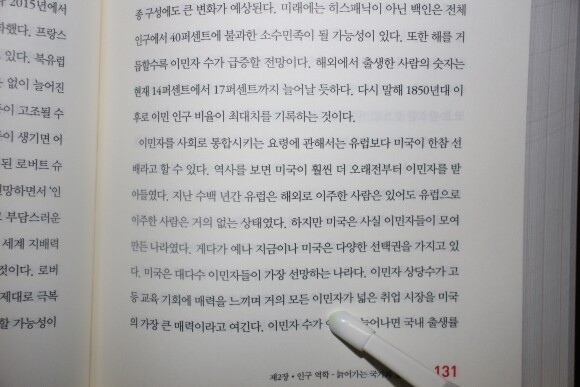 2015년에서
화했다. 프랑스
있다. 북유럽
없이 늘어진
이 고조될 수
이 생기면 어
된 로버트 슈
전망하면서 '인
부담스러운
세계 지배력
것이다. 로버
제대로 극복
할 가능성이
종 구성에도 큰 변화가 예상된다. 미래에는 히스패닉이 아닌 백인은 전체
인구에서 40퍼센트에 불과한 소수민족이 될 가능성이 있다. 또한 해를 거
듭할수록 이민자 수가 급증할 전망이다. 해외에서 출생한 사람의 숫자는
현재 14퍼센트에서 17퍼센트까지 늘어날 듯하다. 다시 말해 1850년대 이
후로 이민 인구 비율이 최대치를 기록하는 것이다.
이민자를 사회로 통합시키는 요령에 관해서는 유럽보다 미국이 한참 선
배라고 할 수 있다. 역사를 보면 미국이 훨씬 더 오래전부터 이민자를 받
아들였다. 지난 수백 년간 유럽은 해외로 이주한 사람은 있어도 유럽으로
이주한 사람은 거의 없는 상태였다. 하지만 미국은 사실 이민자들이 모여
만든 나라였다. 게다가 예나 지금이나 미국은 다양한 선택권을 가지고 있
다. 미국은 대다수 이민자들이 가장 선망하는 나라다. 이민자 상당수가 고
등 교육 기회에 매력을 느끼며 거의 모든 이민자가 넓은 취업 시장을 미국
의 가장 큰 매력이라고 여긴다. 이민자 수가 늘어나면 국내 출생률
제2장 • 인구 역학 - 늙어가는 국가 131